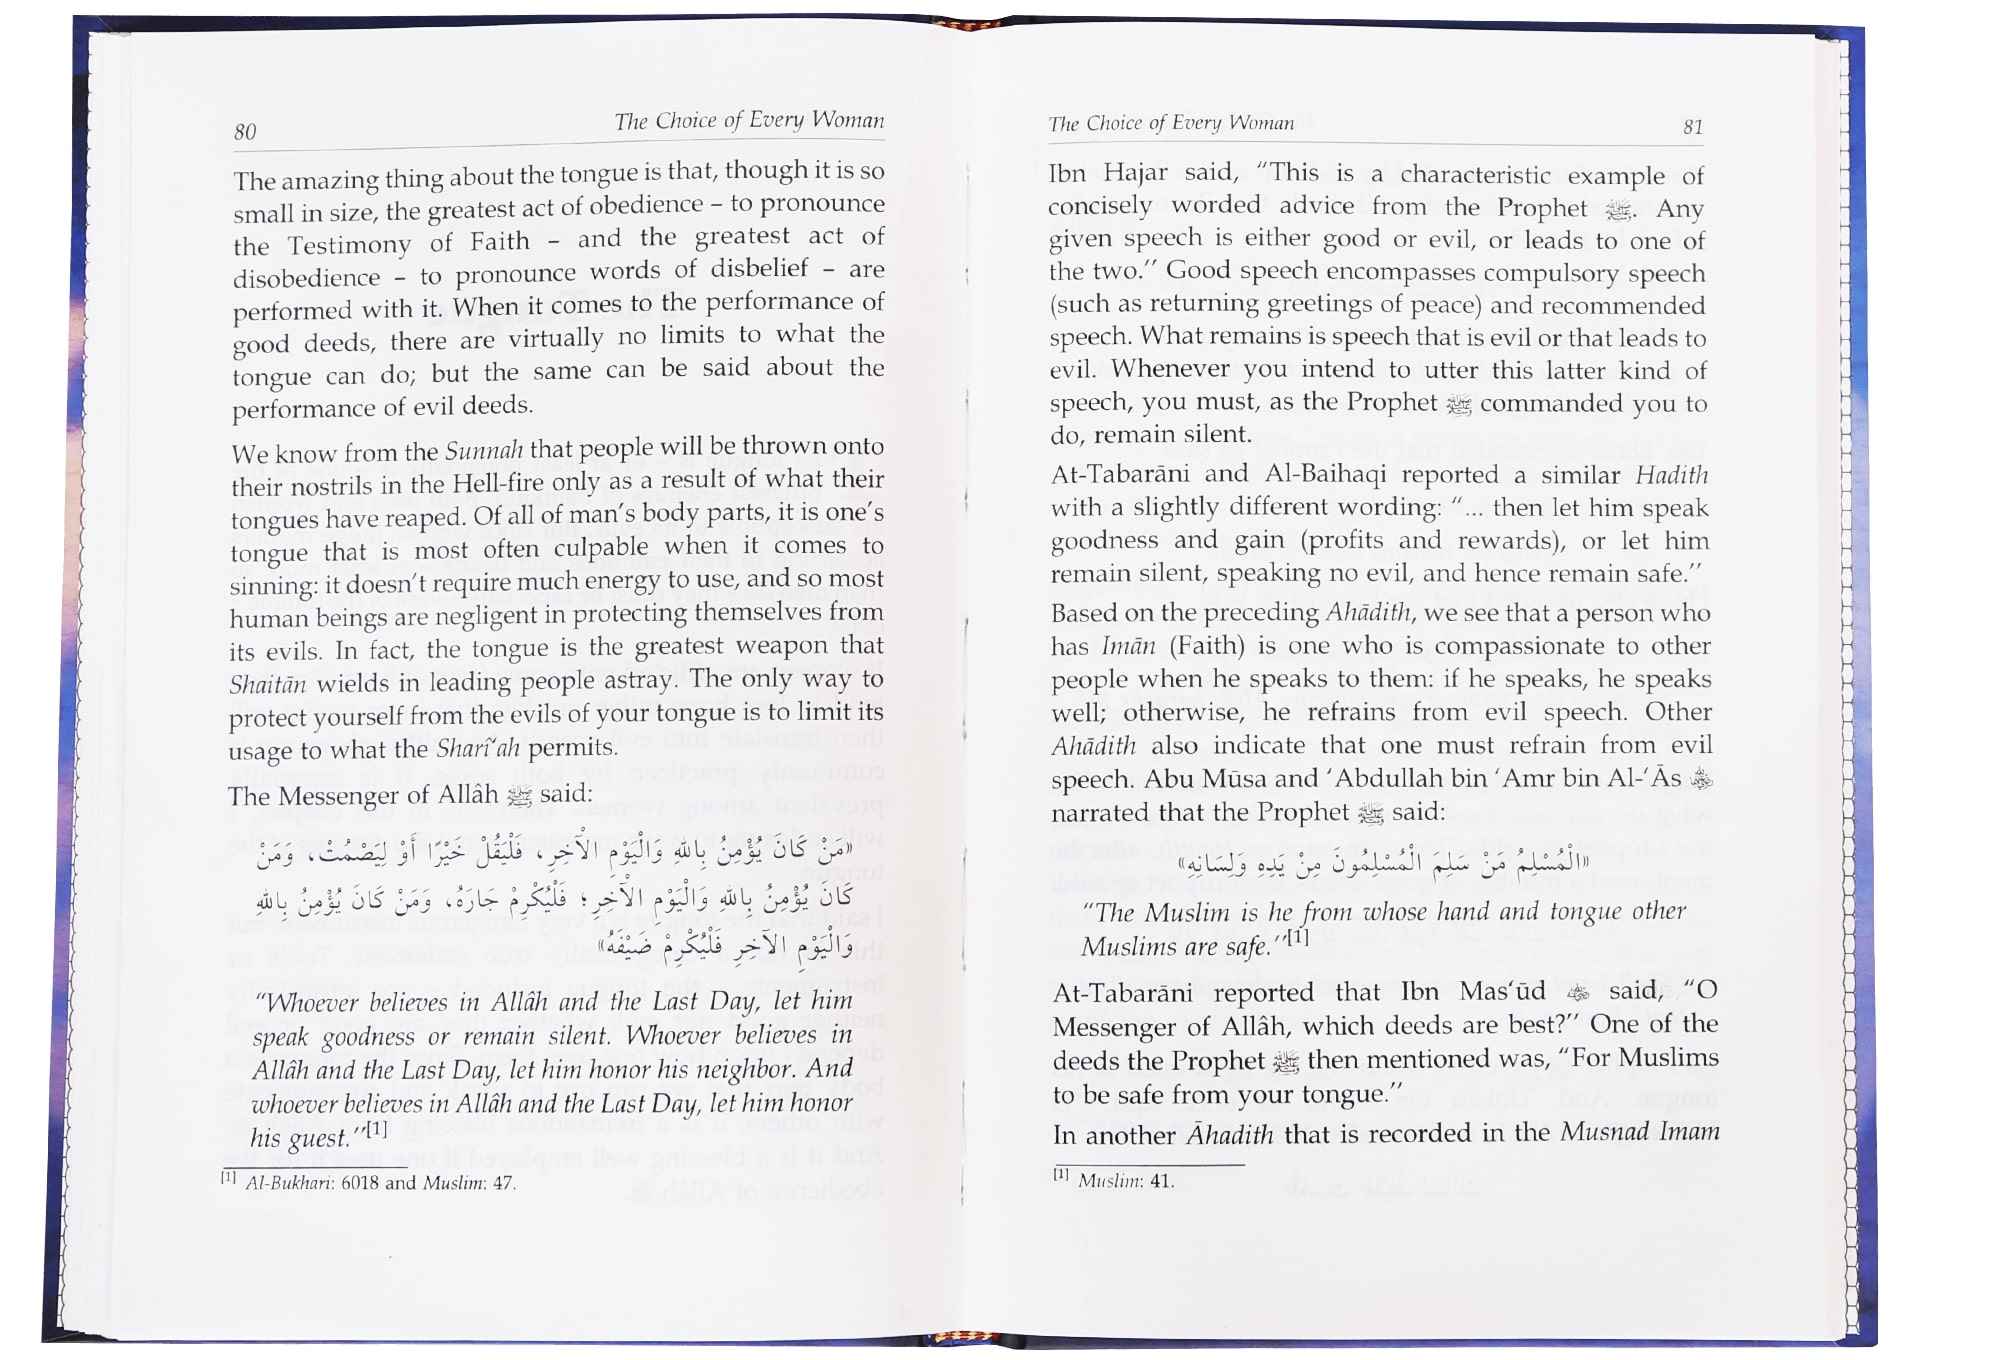 80
The Choice of Every Woman
The amazing thing about the tongue is that, though it is so
small in size, the greatest act of obedience – to pronounce
the Testimony of Faith – and the greatest act of
disobedience – to pronounce words of disbelief – are
performed with it. When it comes to the performance of
good deeds, there are virtually no limits to what the
tongue can do; but the same can be said about the
performance of evil deeds.
We know from the Sunnah that people will be thrown onto
their nostrils in the Hell-fire only as a result of what their
tongues have reaped. Of all of man's body parts, it is one's
tongue that is most often culpable when it comes to
sinning: it doesn't require much energy to use, and so most
human beings are negligent in protecting themselves from
its evils. In fact, the tongue is the greatest weapon that
Shaitān wields in leading people astray. The only way to
protect yourself from the evils of your tongue is to limit its
usage to what the Sharî'ah permits.
The Messenger of Allâh ﷺ said:
«مَنْ كَانَ يُؤْمِنُ بِاللهِ وَالْيَوْمِ الْآخِرِ، فَلْيَقُلْ خَيْرًا أَوْ لِيَصْمُتْ، وَمَنْ
كَانَ يُؤْمِنُ بِاللهِ وَالْيَوْمِ الْآخِرِ؛ فَلْيُكْرِمْ جَارَهُ، وَمَنْ كَانَ يُؤْمِنُ بِاللهِ
وَالْيَوْمِ الآخِرِ فَلْيُكْرِمْ ضَيْفَهُ»
"Whoever believes in Allâh and the Last Day, let him
speak goodness or remain silent. Whoever believes in
Allâh and the Last Day, let him honor his neighbor. And
whoever believes in Allâh and the Last Day, let him honor
his guest."[1]
[1] Al-Bukhari: 6018 and Muslim: 47.
The Choice of Every Woman
81
Ibn Hajar said, "This is a characteristic example of
concisely worded advice from the Prophet ﷺ. Any
given speech is either good or evil, or leads to one of
the two." Good speech encompasses compulsory speech
(such as returning greetings of peace) and recommended
speech. What remains is speech that is evil or that leads to
evil. Whenever you intend to utter this latter kind of
speech, you must, as the Prophet ﷺ commanded you to
do, remain silent.
At-Tabarāni and Al-Baihaqi reported a similar Hadith
with a slightly different wording: "... then let him speak
goodness and gain (profits and rewards), or let him
remain silent, speaking no evil, and hence remain safe."
Based on the preceding Ahādith, we see that a person who
has Imān (Faith) is one who is compassionate to other
people when he speaks to them: if he speaks, he speaks
well; otherwise, he refrains from evil speech. Other
Ahādith also indicate that one must refrain from evil
speech. Abu Mūsa and 'Abdullah bin 'Amr bin Al-'Ās
narrated that the Prophet ﷺ said:
«الْمُسْلِمُ مَنْ سَلِمَ الْمُسْلِمُونَ مِنْ يَدِهِ وَلِسَانِهِ»
"The Muslim is he from whose hand and tongue other
Muslims are safe."[1]
At-Tabarāni reported that Ibn Mas'ūd said, "O
Messenger of Allâh, which deeds are best?" One of the
deeds the Prophet ﷺ then mentioned was, "For Muslims
to be safe from your tongue."
In another Āhadith that is recorded in the Musnad Imam
[1] Muslim: 41.